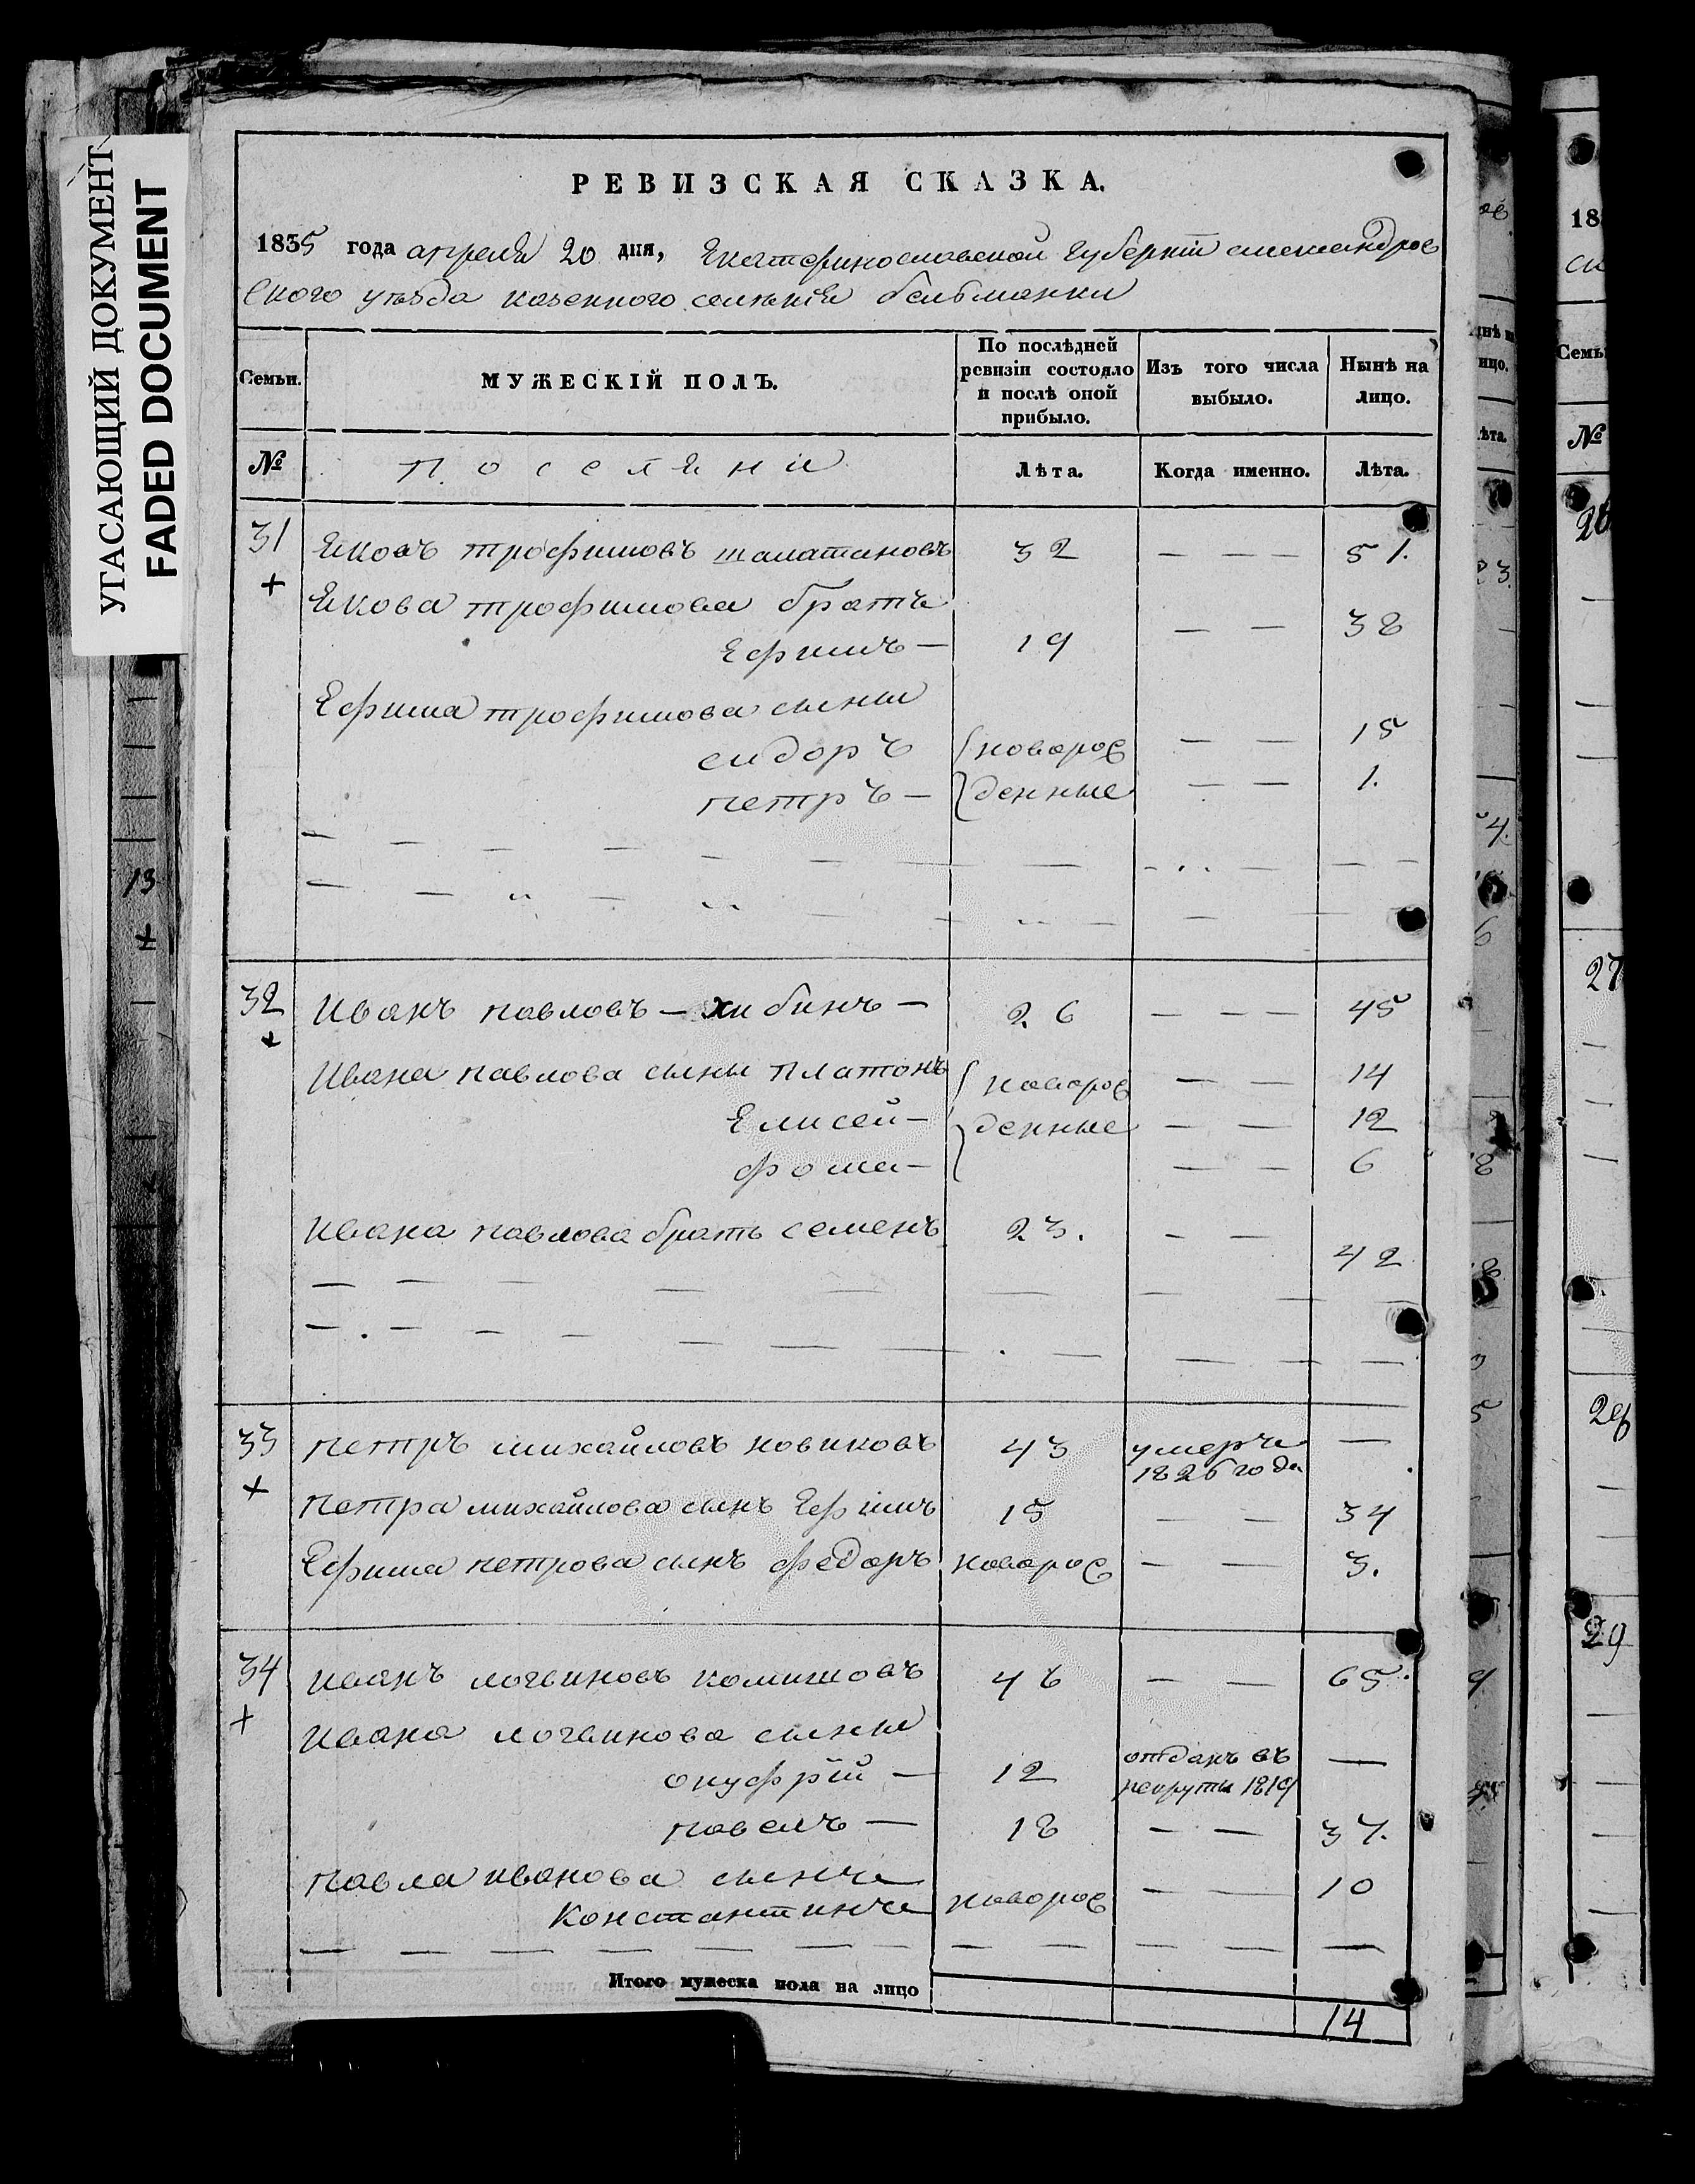 УГАСАЮЩИЙ ДОКУМЕНТ
FADED DOCUMENT
РЕВИЗСКАЯ СКАЗКА.
1835 года апреля 20 дня, Екатеринославской губерніи александров
ского уѣзда казенного селенія бельманки
Семьи.
МУЖЕСКІЙ ПОЛЪ.
По послѣдней
ревизіи состояло
и послѣ оной
прибыло.
Изъ того числа
выбыло.
Нынѣ на
лицо.
№ поселяни Лѣта. Когда именно. Лѣта.
31 Яковъ трофимовъ шаматиновъ 32 — — — 51.
+ Якова трофимова братъ
Ефимъ — 19 — — 38
Ефима трофимова сыны
сидоръ новорож — — 15
петръ — денные — — 1.
32 Иванъ павловъ — хибинъ — 26 — — — 45
+
Ивана павлова сыны платонъ новорож — — 14
Елисей — денные — — 12
фома — — — 6
Ивана павлова братъ семенъ 23. — — 42
33 петръ михайловъ новиковъ 43 умеръ —
+ 1826 года
петра михайлова сынъ Ефимъ 15 — — 34
Ефима петрова сынъ федоръ новорож — — 3.
34 иванъ логвиновъ комишовъ 46 — — 65.
+ ивана логвинова сыны
онуфрій — 12 отданъ въ —
рекруты 1819
павелъ — 18 — — 37.
павла иванова сынъ
Константинъ новорож — — 10
Итого мужеска пола на лицо
14
13
+
18
Семьи
№
26
27
28
29